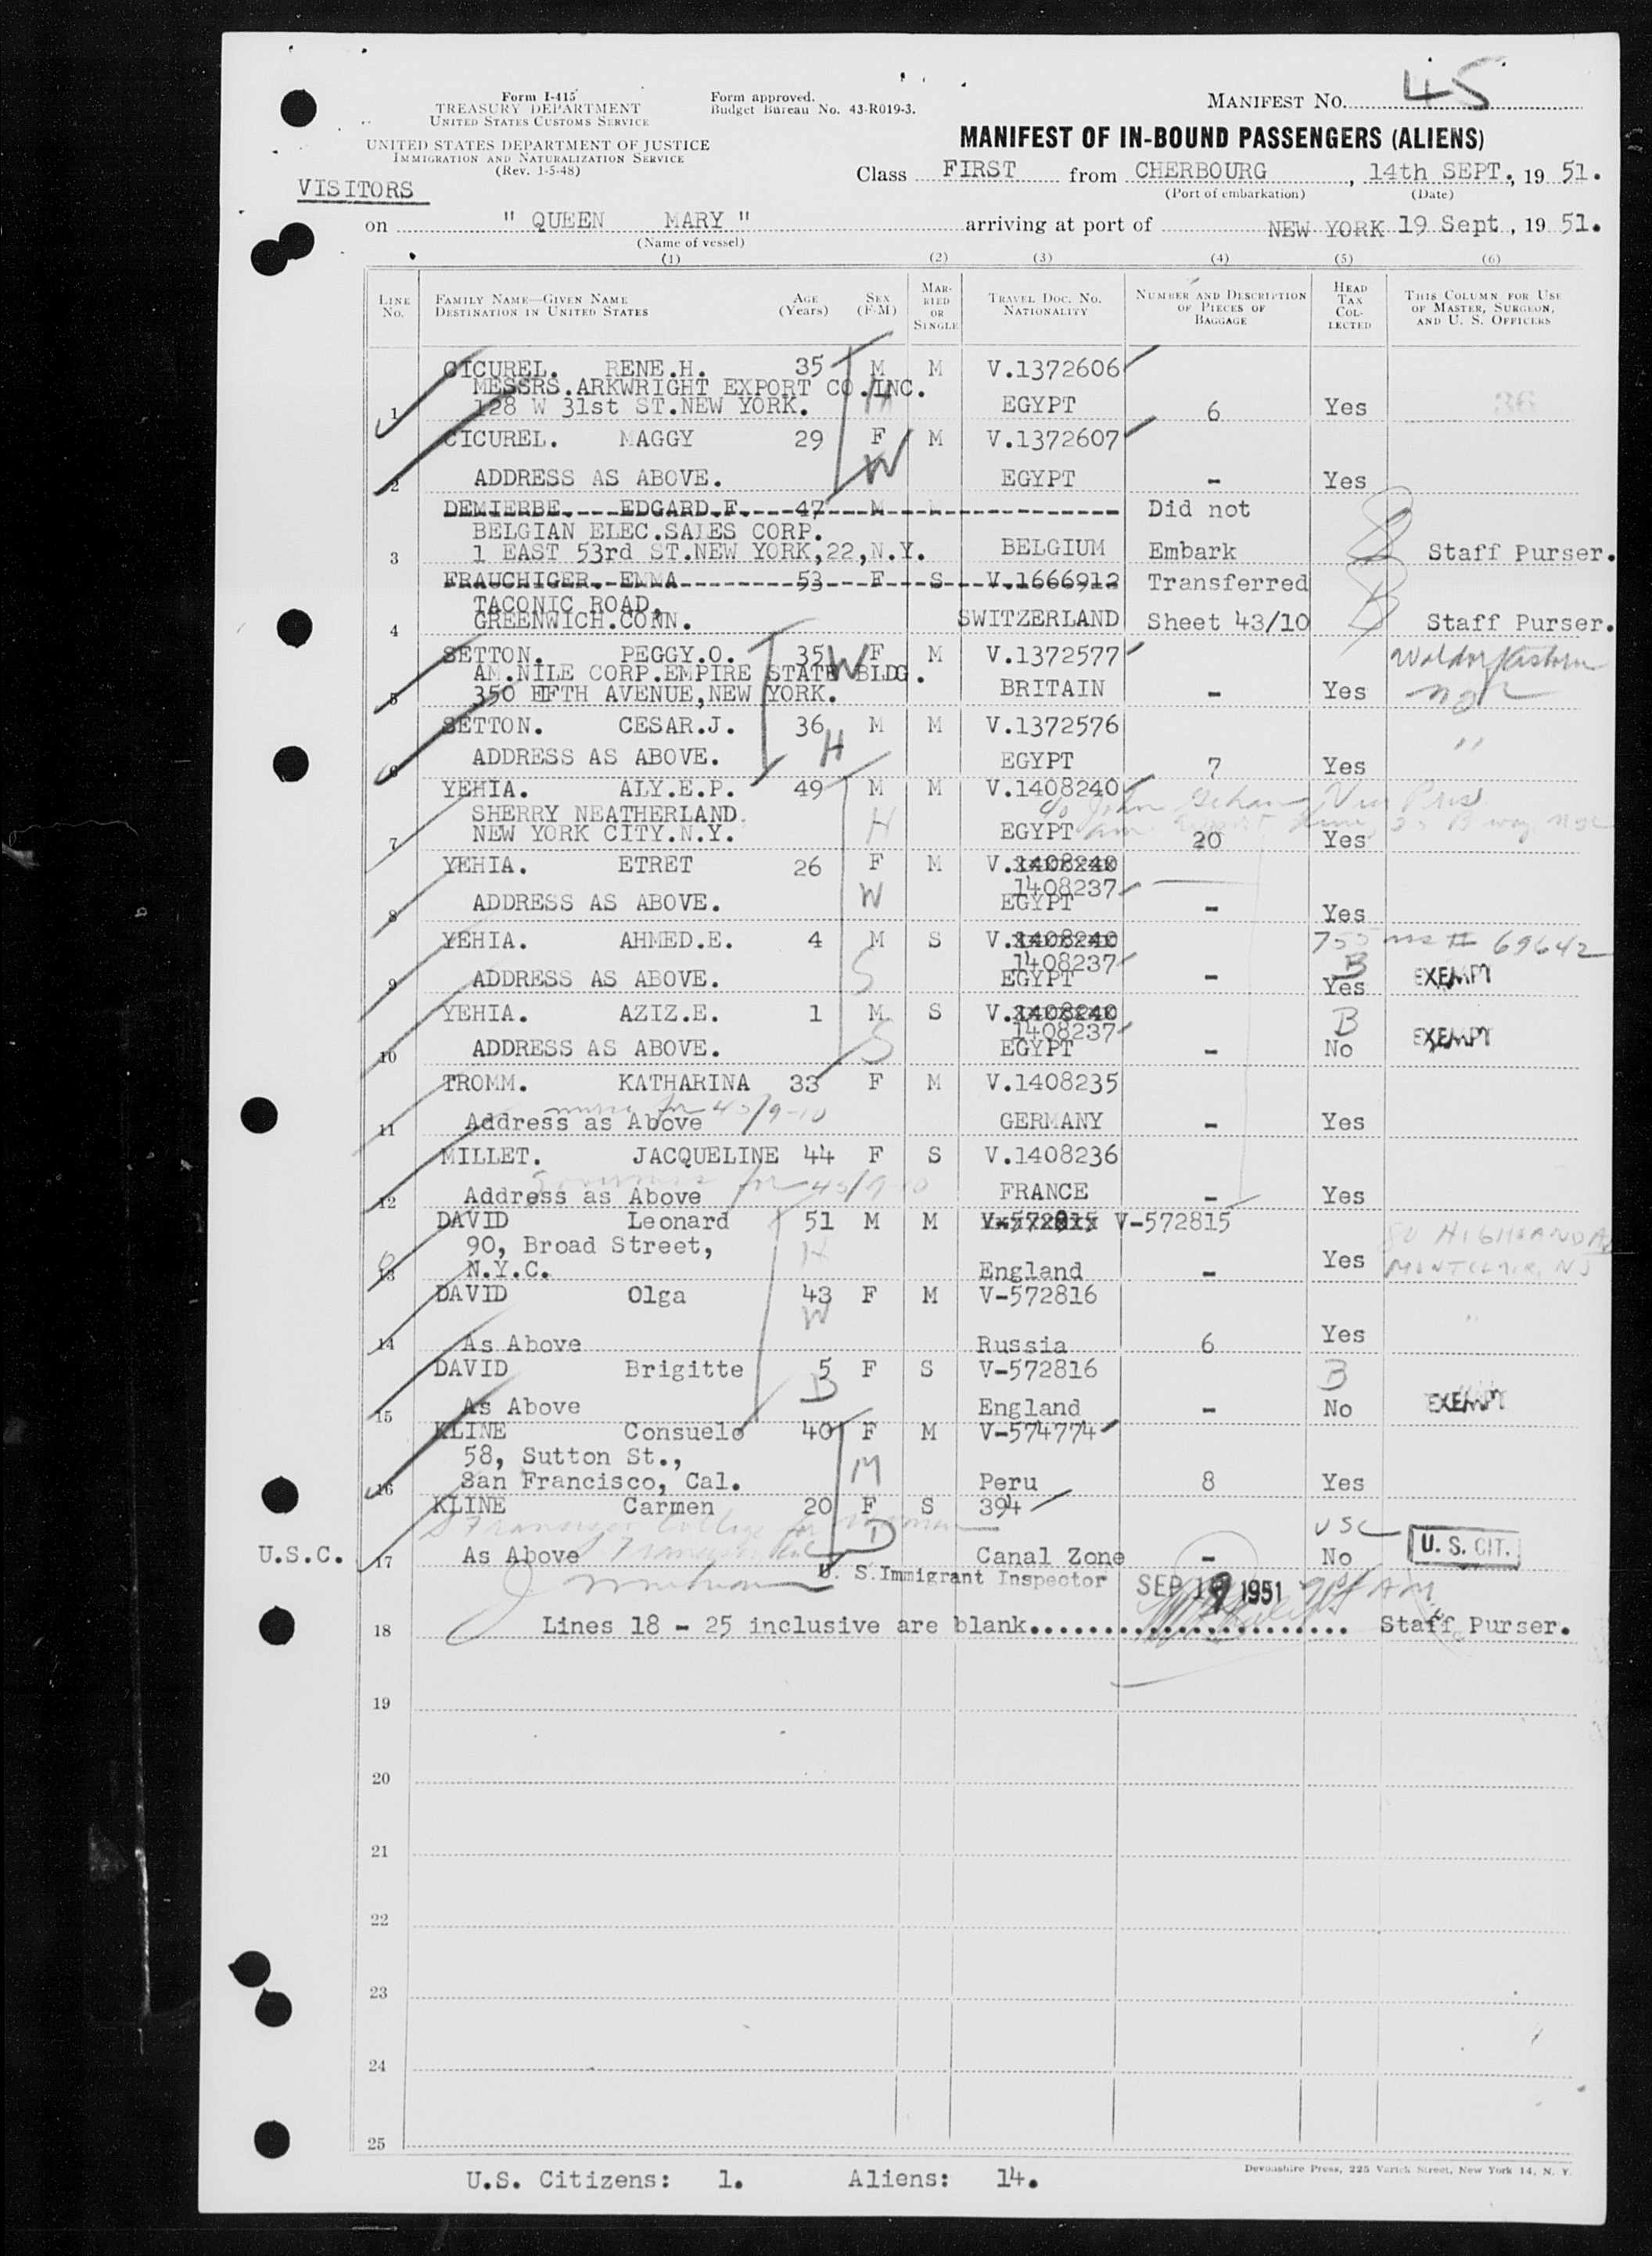 Form I-415
TREASURY DEPARTMENT
UNITED STATES CUSTOMS SERVICE
UNITED STATES DEPARTMENT OF JUSTICE
IMMIGRATION AND NATURALIZATION SERVICE
(Rev. 1-5-48)
Form approved.
Budget Bureau No. 43-R019-3.
MANIFEST NO. 45
MANIFEST OF IN-BOUND PASSENGERS (ALIENS)
VISITORS
Class FIRST from CHERBOURG, 14th SEPT., 19 51.
(Port of embarkation) (Date)
on " QUEEN MARY " arriving at port of NEW YORK 19 Sept, 19 51.
(Name of vessel)
(1) (2) (3) (4) (5) (6)
LINE No. FAMILY NAME—GIVEN NAME DESTINATION IN UNITED STATES AGE (Years) SEX (F-M) MARRIED OR SINGLE TRAVEL DOC. NO. NATIONALITY NUMBER AND DESCRIPTION OF PIECES OF BAGGAGE HEAD TAX COLLECTED THIS COLUMN FOR USE OF MASTER, SURGEON, AND U. S. OFFICERS
CICUREL. RENE.H. 35 M M V.1372606
MESSRS.ARKWRIGHT EXPORT CO.INC. H
1 128 W 31st ST.NEW YORK. EGYPT 6 Yes 36
CICUREL. MAGGY 29 F M V.1372607
W
2 ADDRESS AS ABOVE. EGYPT - Yes
DEMIERBE. EDGARD.F. 47 M M Did not
BELGIAN ELEC.SALES CORP.
3 1 EAST 53rd ST.NEW YORK,22,N.Y. BELGIUM Embark Staff Purser.
FRAUCHIGER. EMMA 53 F S V.1666912 Transferred
TACONIC ROAD,
4 GREENWICH.CONN. SWITZERLAND Sheet 43/10 Staff Purser.
SETTON. PEGGY.O. 35 W F M V.1372577 Waldorf Astoria
AM.NILE CORP.EMPIRE STATE BLDG.
5 350 FIFTH AVENUE,NEW YORK. BRITAIN - Yes
SETTON. CESAR.J. 36 M M V.1372576
H "
6 ADDRESS AS ABOVE. EGYPT 7 Yes
YEHIA. ALY.E.P. 49 M M V.1408240
SHERRY NEATHERLAND. H c/o John
7 NEW YORK CITY.N.Y. EGYPT 20 Yes
YEHIA. ETRET 26 F M V.1408240
1408237
8 ADDRESS AS ABOVE. W EGYPT - Yes
YEHIA. AHMED.E. 4 M S V.1408240 755 69642
1408237 B
9 ADDRESS AS ABOVE. S EGYPT - Yes EXEMPT
YEHIA. AZIZ.E. 1 M S V.1408240
1408237 B EXEMPT
10 ADDRESS AS ABOVE. S EGYPT - No
TROMM. KATHARINA 33 F M V.1408235
nurse for 45/9-10
11 Address as Above GERMANY - Yes
MILLET. JACQUELINE 44 F S V.1408236
Governess for 45/9-10
12 Address as Above FRANCE - Yes
DAVID Leonard 51 M M V-572815 V-572815
90, Broad Street, H 80 HIGHLAND AV
13 N.Y.C. England - Yes MONTCLAIR, NJ
DAVID Olga 43 F M V-572816
W "
14 As Above Russia 6 Yes
DAVID Brigitte 5 F S V-572816
B B
15 As Above England - No EXEMPT
KLINE Consuelo 40 F M V-574774
58, Sutton St., M
16 San Francisco, Cal. Peru 8 Yes
KLINE Carmen 20 F S 394
S Francisco College for Women USC
U.S.C. 17 As Above D Canal Zone - No U. S. CIT.
U. S. Immigrant Inspector SEP 19 1951 AM
18 Lines 18 - 25 inclusive are blank. Staff Purser.
19
20
21
22
23
24
25
U.S. Citizens: 1. Aliens: 14.
Devonshire Press, 225 Varick Street, New York 14, N. Y.